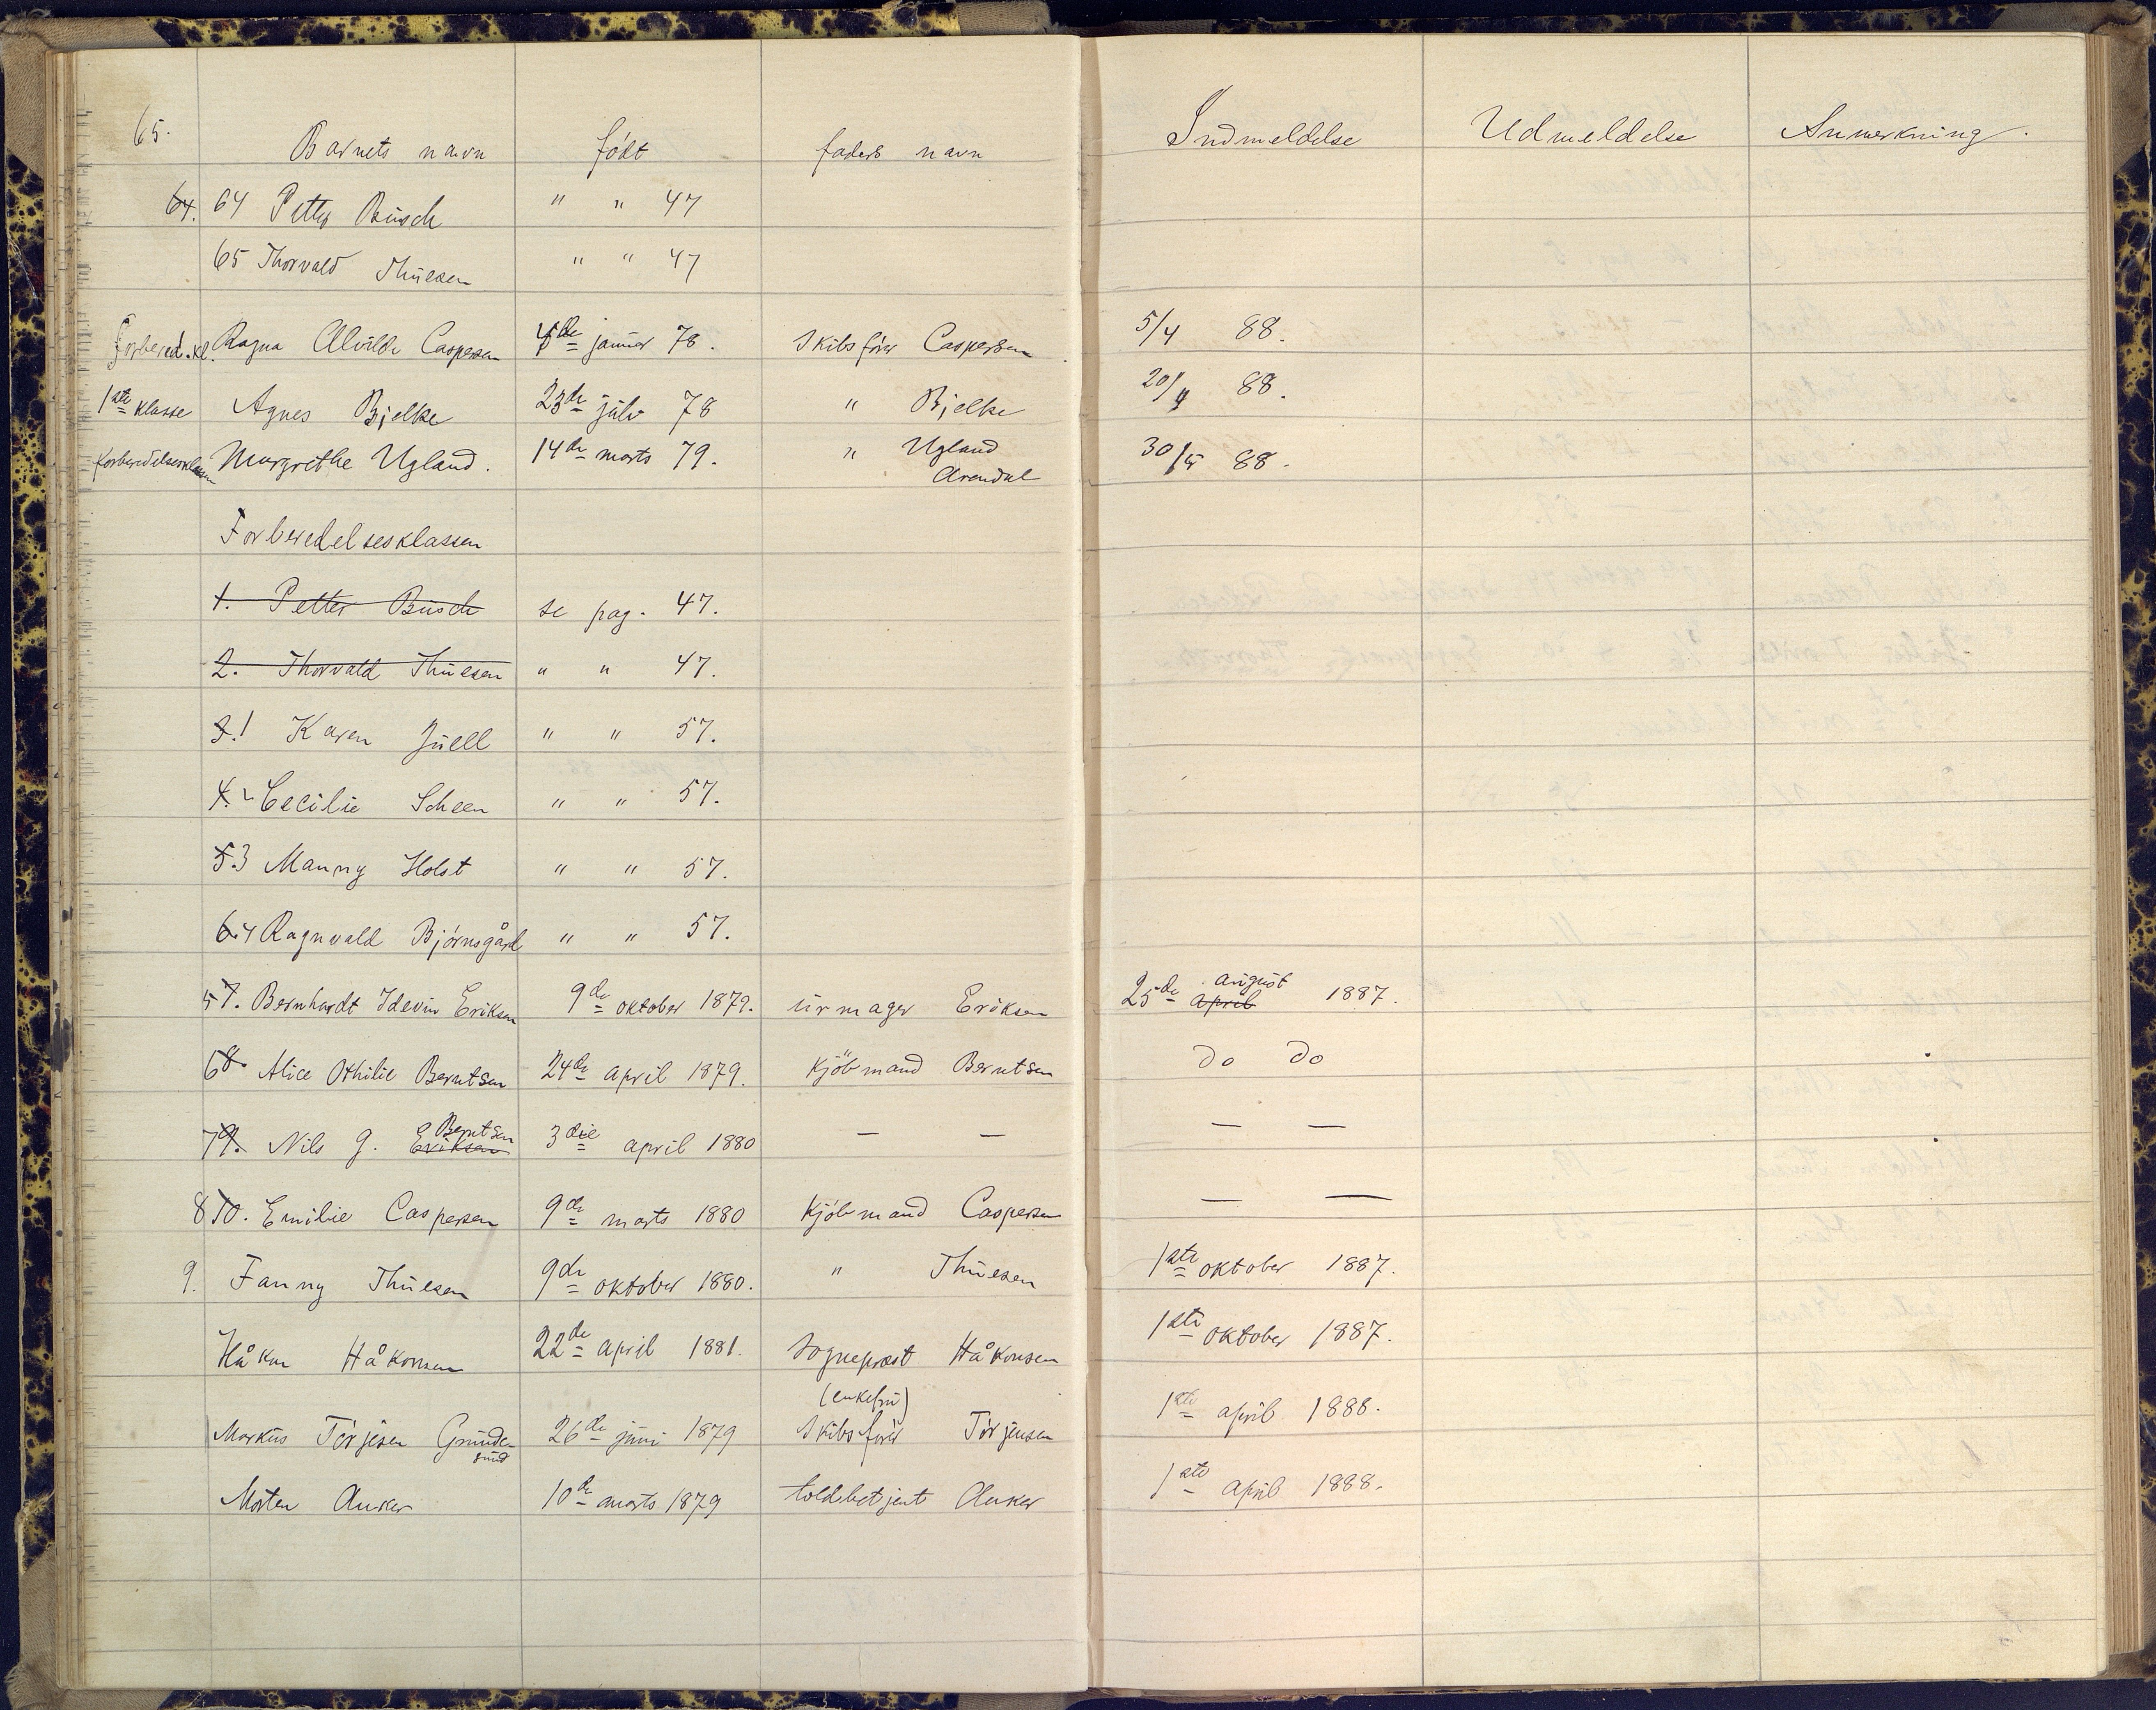 65. Barnets navn født faders navn Indmeldelse Udmeldelse Anmerkning.
64. 64 Petter Büsch " " 47
65 Thorvald Thüesen " " 47
Forbered.kl. Ragna Alvilde Caspersen 4de janüar 78. Skibsfører Caspersen 5/4 88.
1ste klasse Agnes Bjelke 23de jüli 78 " Bjelke 20/4 88.
forberedelsesklassen Margrethe Ugland. 14de marts 79. " Ugland 30/5 88.
Arendal
Forberedelsesklassen
1. Petter Büsch se pag. 47.
2. Thorvald Thüesen " " 47.
3.1 Karen Jüell " " 57.
4.2 Cecilie Scheen " " 57.
5.3 Manny Holst " " 57.
6.4 Ragnvald Bjørnsgård " " 57.
57. Bernhardt Idevin Eriksen 9de oktober 1879. ürmager Eriksen 25de april august 1887.
68. Alice Othilie Berntsen 24de april 1879. Kjöbmand Berntsen do do
79. Nils G. Eriksen Berntsen 3die april 1880 — — — —
8 10. Emilie Caspersen 9de marts 1880 Kjöbmand Caspersen — —
9. Fanny Thüesen 9de oktober 1880. " Thüesen 1ste oktober 1887.
Håkon Håkonsen 22de april 1881. Sogneprest Håkonsen 1ste oktober 1887.
(enkefrü)
Markus Terjesen Gründe- 26de jüni 1879 Skibsfører Terjensen 1ste april 1888.
sünd
Morten Anker 10de marts 1879 toldbetjent Anker 1ste april 1888.